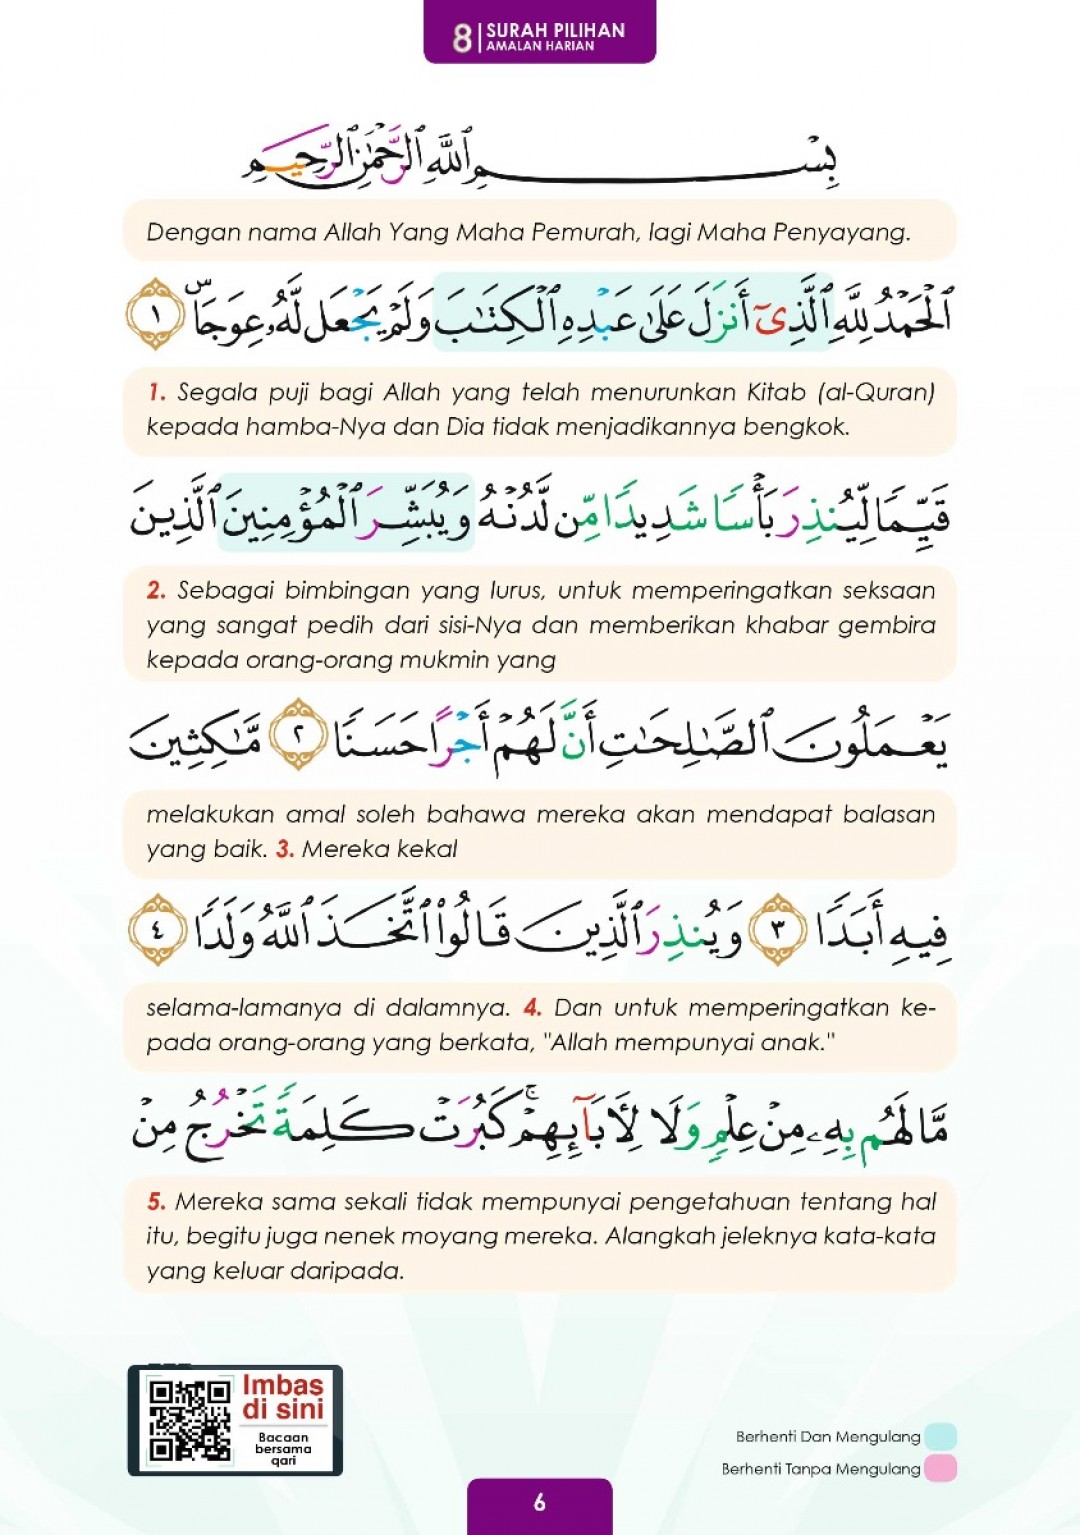 8 SURAH PILIHAN
AMALAN HARIAN
بِسْمِ ٱللَّهِ ٱلرَّحْمَٰنِ ٱلرَّحِيمِ
Dengan nama Allah Yang Maha Pemurah, lagi Maha Penyayang.
ٱلْحَمْدُ لِلَّهِ ٱلَّذِىٓ أَنزَلَ عَلَىٰ عَبْدِهِ ٱلْكِتَٰبَ وَلَمْ يَجْعَل لَّهُۥ عِوَجَاۜ ١
1. Segala puji bagi Allah yang telah menurunkan Kitab (al-Quran)
kepada hamba-Nya dan Dia tidak menjadikannya bengkok.
قَيِّمًا لِّيُنذِرَ بَأْسًا شَدِيدًا مِّن لَّدُنْهُ وَيُبَشِّرَ ٱلْمُؤْمِنِينَ ٱلَّذِينَ
2. Sebagai bimbingan yang lurus, untuk memperingatkan seksaan
yang sangat pedih dari sisi-Nya dan memberikan khabar gembira
kepada orang-orang mukmin yang
يَعْمَلُونَ ٱلصَّٰلِحَٰتِ أَنَّ لَهُمْ أَجْرًا حَسَنًا ٢ مَّٰكِثِينَ
melakukan amal soleh bahawa mereka akan mendapat balasan
yang baik. 3. Mereka kekal
فِيهِ أَبَدًا ٣ وَيُنذِرَ ٱلَّذِينَ قَالُوا۟ ٱتَّخَذَ ٱللَّهُ وَلَدًا ٤
selama-lamanya di dalamnya. 4. Dan untuk memperingatkan ke-
pada orang-orang yang berkata, "Allah mempunyai anak."
مَّا لَهُم بِهِۦ مِنْ عِلْمٍ وَلَا لِأَبَآئِهِمْ ۚ كَبُرَتْ كَلِمَةً تَخْرُجُ مِنْ
5. Mereka sama sekali tidak mempunyai pengetahuan tentang hal
itu, begitu juga nenek moyang mereka. Alangkah jeleknya kata-kata
yang keluar daripada.
Imbas
di sini
Bacaan
bersama
qari
Berhenti Dan Mengulang
Berhenti Tanpa Mengulang
6